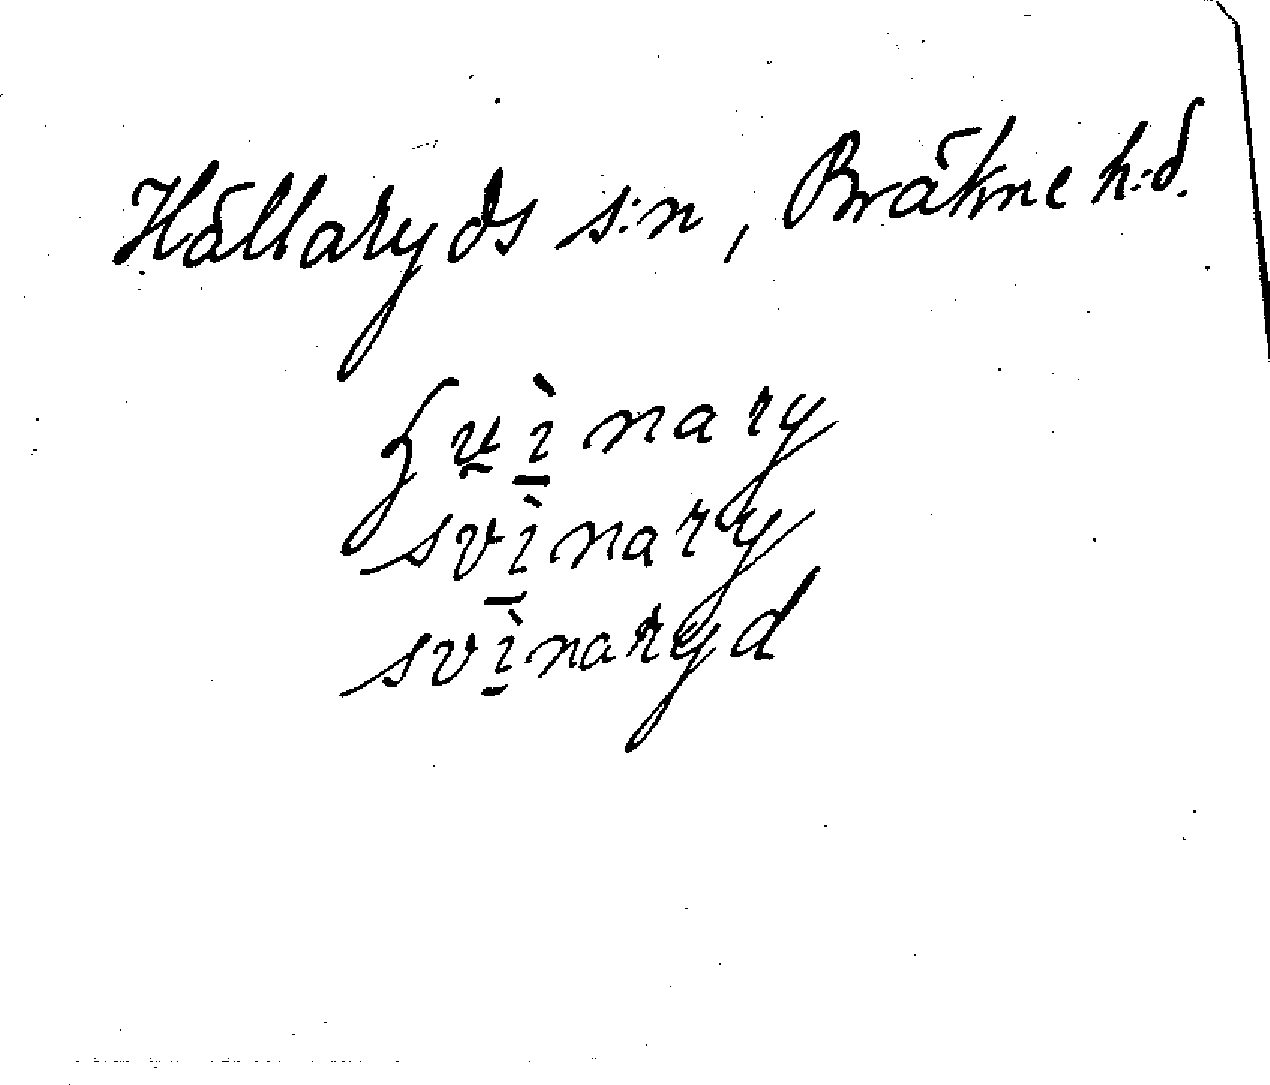 Hällaryds s:n, Bräkne h:d.
ʃu̯ì̱nary
svì̱nary
svì̱naryd